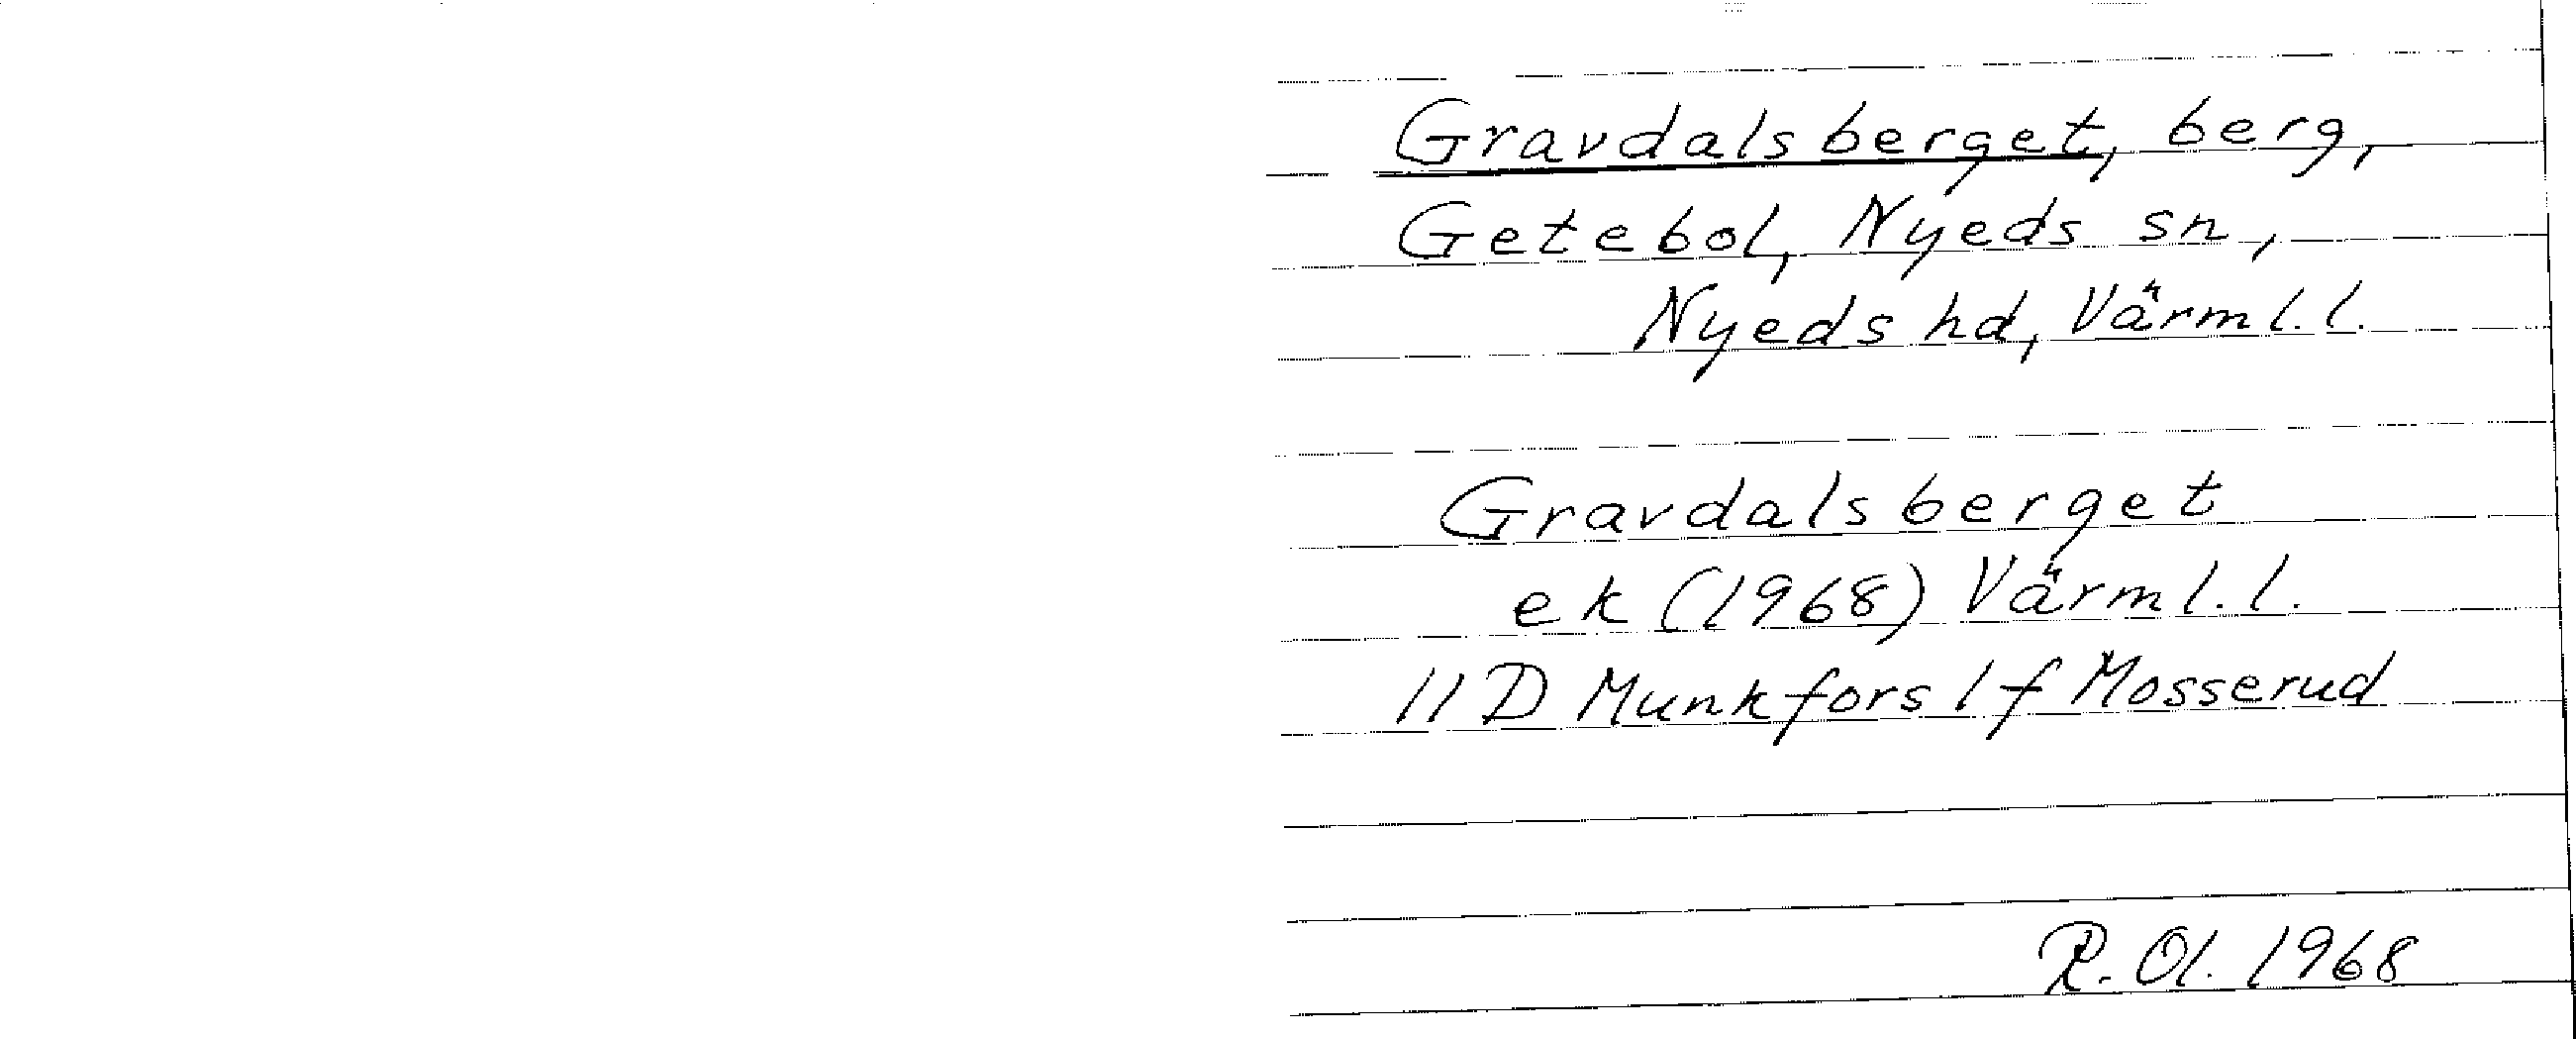 Gravdalsberget, berg,
Getebol, Nyeds sn,
Nyeds hd, Värml. l.
Gravdalsberget
ek (1968) Värml. l.
11 D Munkfors 1 f Mosserud
R. Ol. 1968